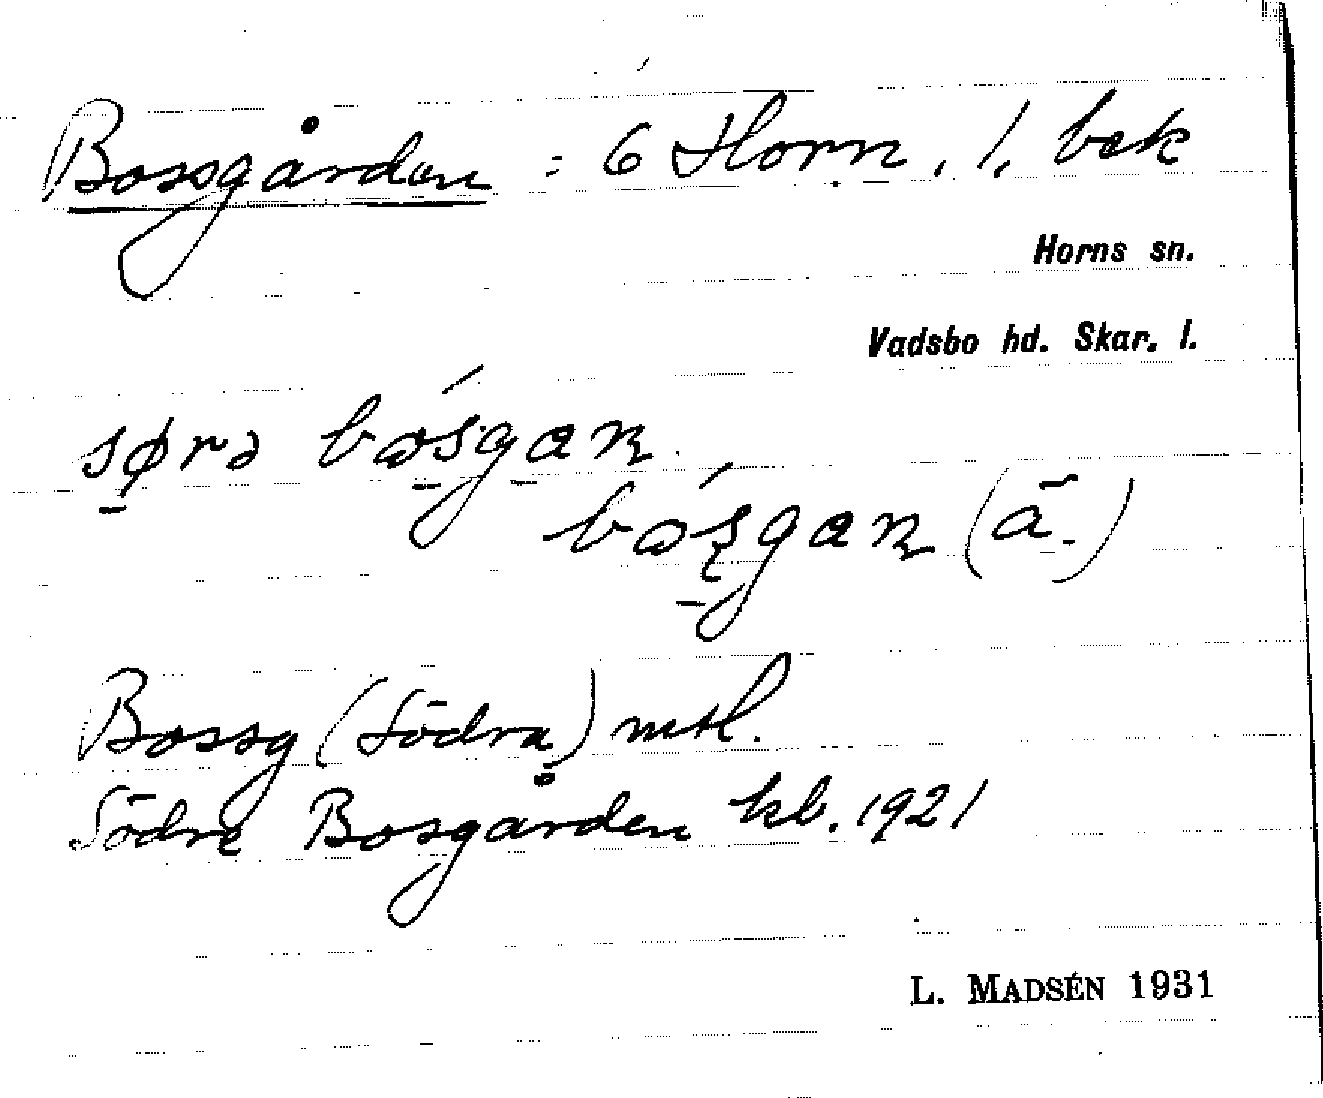 Bossgården : 6 Horn, 1, bek
Horns sn.
Vadsbo hd. Skar. l.
sørə
(ā.)
Bossg (Södra) mtl.
Södra Bosgården kb. 1921
L. MADSÉN 1931